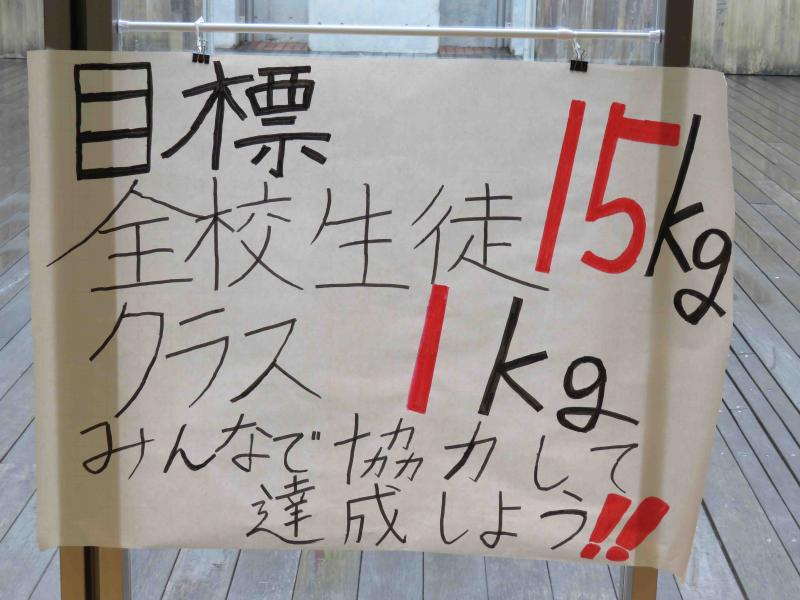 目標
全校生徒 15kg
クラス 1kg
みんなで協力して
達成しよう!!